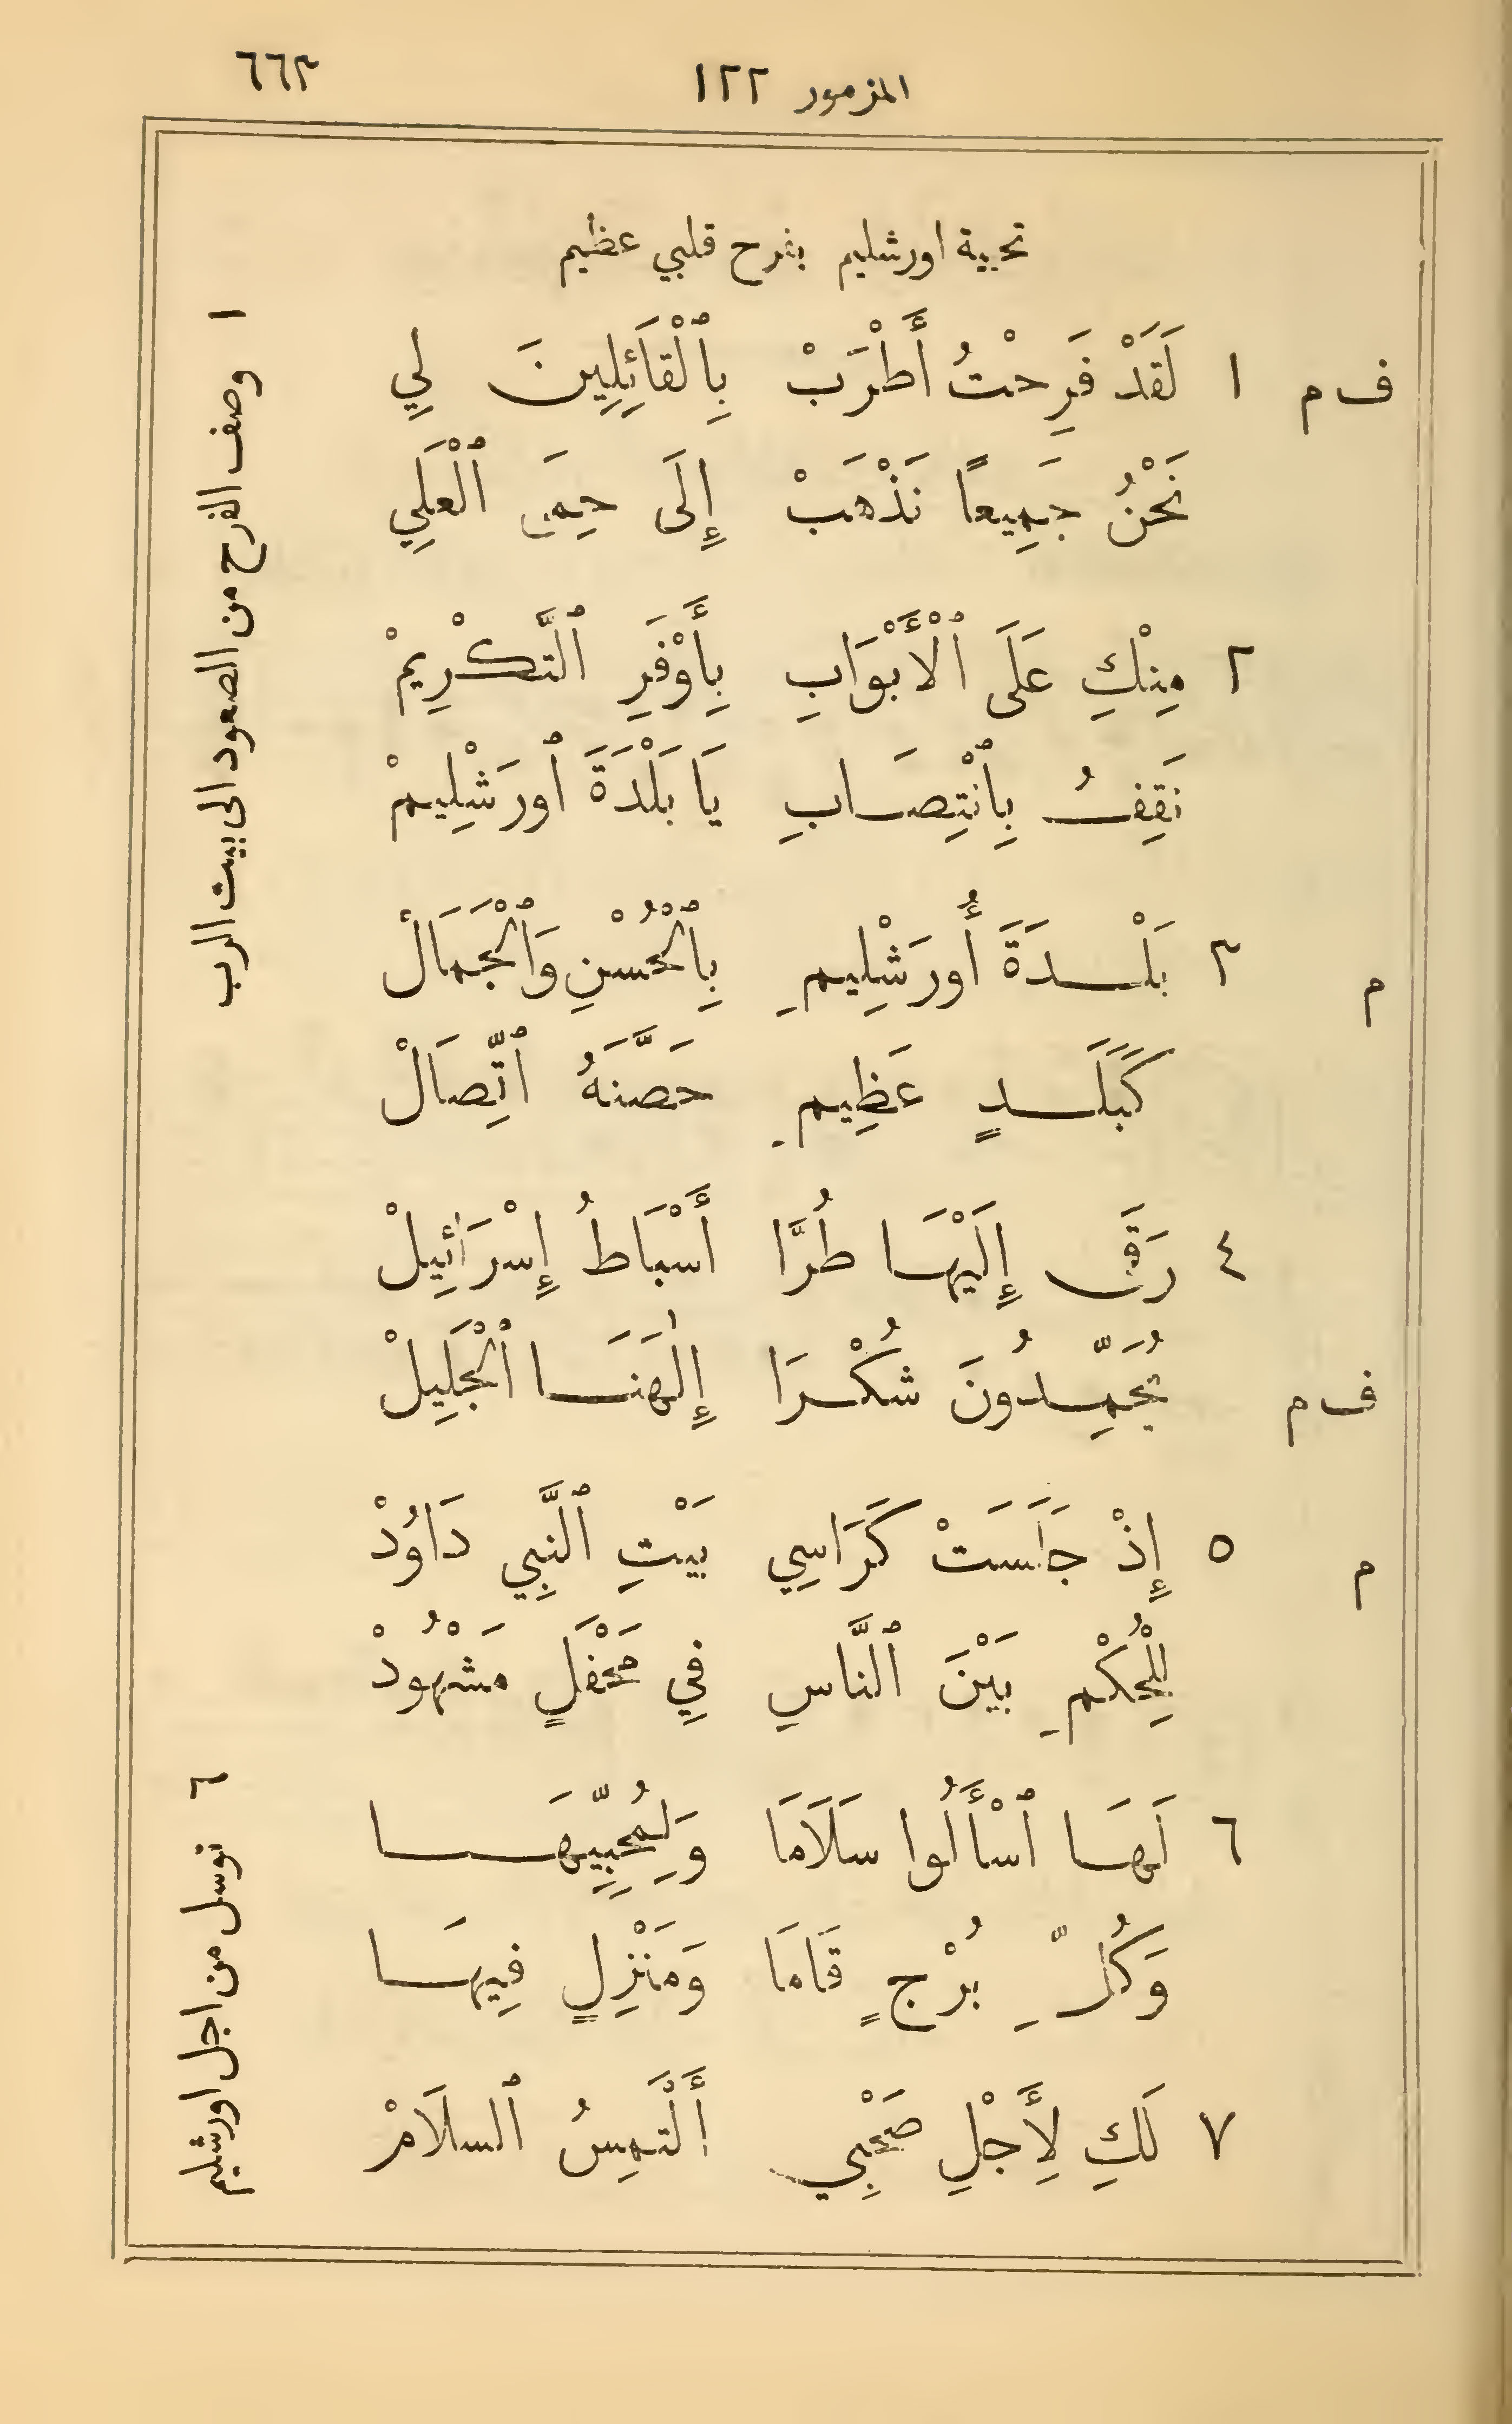 المزمور ١٢٢ ٦٦٣
تحية اورشليم بفرح قلبي عظيم
ف م ١ لَقَدْ فَرِحْتُ أَطْرَبْ بِٱلْقَائِلِينَ لِي
نَحْنُ جَمِيعًا نَذْهَبْ إِلَى حِمَى ٱلْعَلِي
٢ مِنْكِ عَلَى ٱلْأَبْوَابِ بِأَوْفَرِ ٱلتَّكْرِيمْ
نَقِفُ بِٱنْتِصَابِ يَا بَلْدَةَ ٱورَشْلِيمْ
م ٣ بَلْدَةَ أُورَشْلِيمِ بِٱلْحُسْنِ وَٱلْجَمَالْ
كَبَلَدٍ عَظِيمِ حَصَّنَهُ ٱتِّصَالْ
٤ رَقَى إِلَيْهَا طُرَّا أَسْبَاطُ إِسْرَائِيلْ
ف م يُحَمِّدُونَ شُكْرَا إِلٰهَنَا ٱلْجَلِيلْ
م ٥ إِذْ جَلَسَتْ كَرَاسِي بَيْتِ ٱلنَّبِي دَاوُدْ
لِلْحُكْمِ بَيْنَ ٱلنَّاسِ فِي مَحْفَلٍ مَشْهُودْ
٦ لَهَا ٱسْأَلُوا سَلَامَا وَلِمُحِبِّيهَا
وَكُلِّ بُرْجٍ قَامَا وَمَنْزِلٍ فِيهَا
٧ لَكِ لِأَجْلِ صَحْبِي أَلْتَمِسُ ٱلسلَامْ
١ وصف الفرح من الصعود الى بيت الرب
٦ توسل من اجل اورشليم